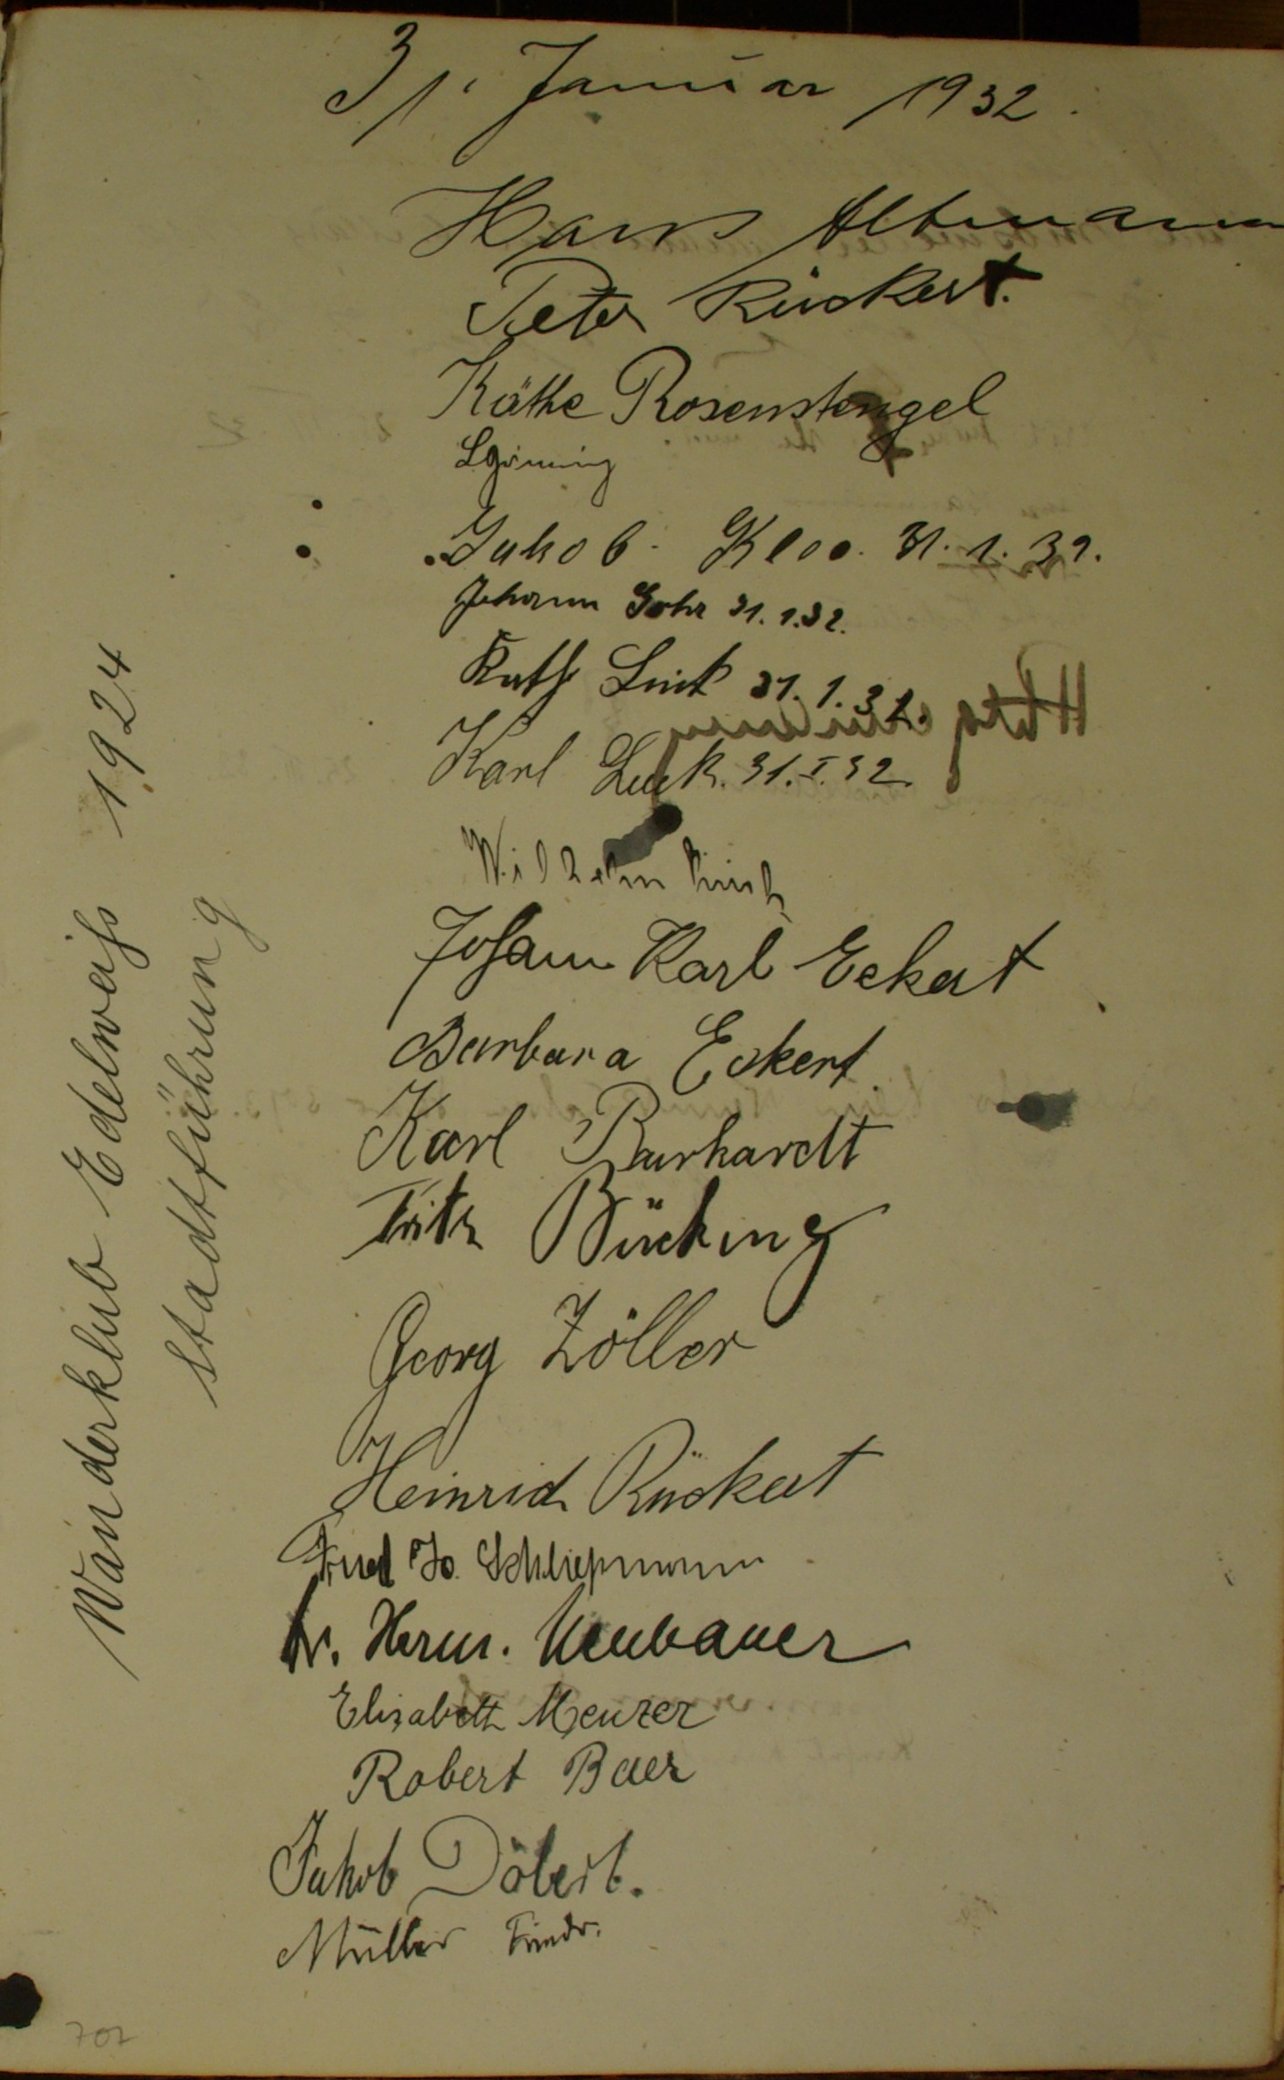 31. Januar 1932.
Hans Altmann
Peter Rückert.
Käthe Rosenstengel
Jakob Kloo. 31. 1. 32.
Johann Gohr 31. 1. 32.
Kath Link 31. 1. 32.
Karl Luck. 31. I. 32.
Wilhelm
Johann Karl Eckert
Barbara Eckert.
Karl Burkhardt
Fritz Bücking
Georg Zöller
Heinrich Rückert
Fried Jo. Schliepmann
Dr. Herm. Neubauer
Elisabeth Menzer
Robert Baer
Jakob Döbert.
Müller Friedr.
Wanderklub Edelweiß 1924
Stadtführung
702